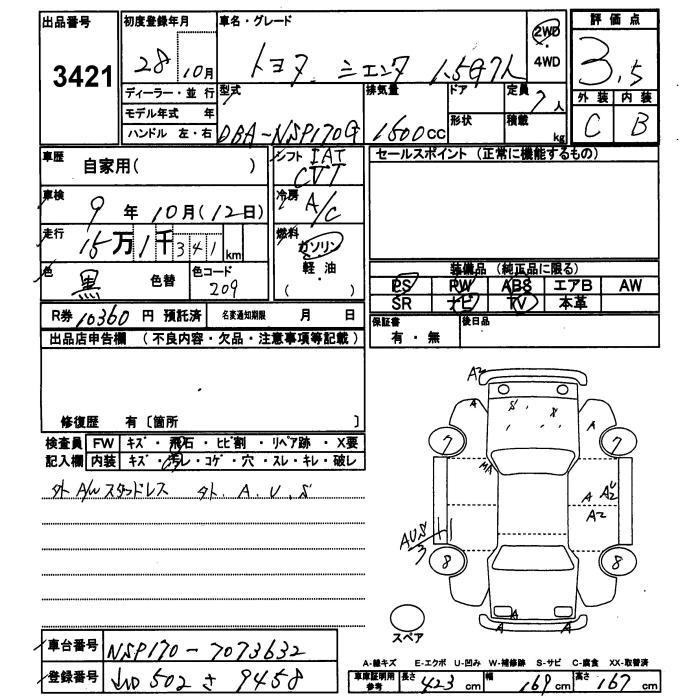 出品番号
3421
初度登録年月
28 10月
車名・グレード
トヨタ シエンタ 1.5G 7人
2WD
4WD
評価点
3.5
外装 内装
C B
ディーラー・並行
モデル年式 年
ハンドル 左・右
型式
DBA-NSP170G
排気量
1500cc
ドア
形状
定員
7人
積載
kg
車歴
自家用( )
シフト IAT
CVT
セールスポイント (正常に機能するもの)
車検
9年10月(12日)
冷房
A/C
走行
15万1千341km
燃料
ガソリン
軽・油
( )
色
黒 色替
色コード
209
装備品 (純正品に限る)
PS PW ABS エアB AW
SR ナビ TV 本革
R券 10360 円 預託済
名変通知期限 月 日
保証書
有・無
後日品
出品店申告欄 (不良内容・欠品・注意事項等記載)
修復歴 有〔箇所 〕
検査員
記入欄
FW キズ・飛石・ヒビ割・リペア跡・X要
内装 キズ・汚レ・コゲ・穴・スレ・キレ・破レ
外 A/W スタッドレス 外. A. U. S
A2
A
S X
A
7 7
MA
A A2U
A2
AUS
3
8 8
A A
スペア
車台番号
NSP170-7073632
登録番号
502 さ 9458
A-線キズ E-エクボ U-凹み W-補修跡 S-サビ C-腐食 XX-取替済
車庫証明用
参考
長さ 423 cm 幅 169 cm 高さ 167 cm